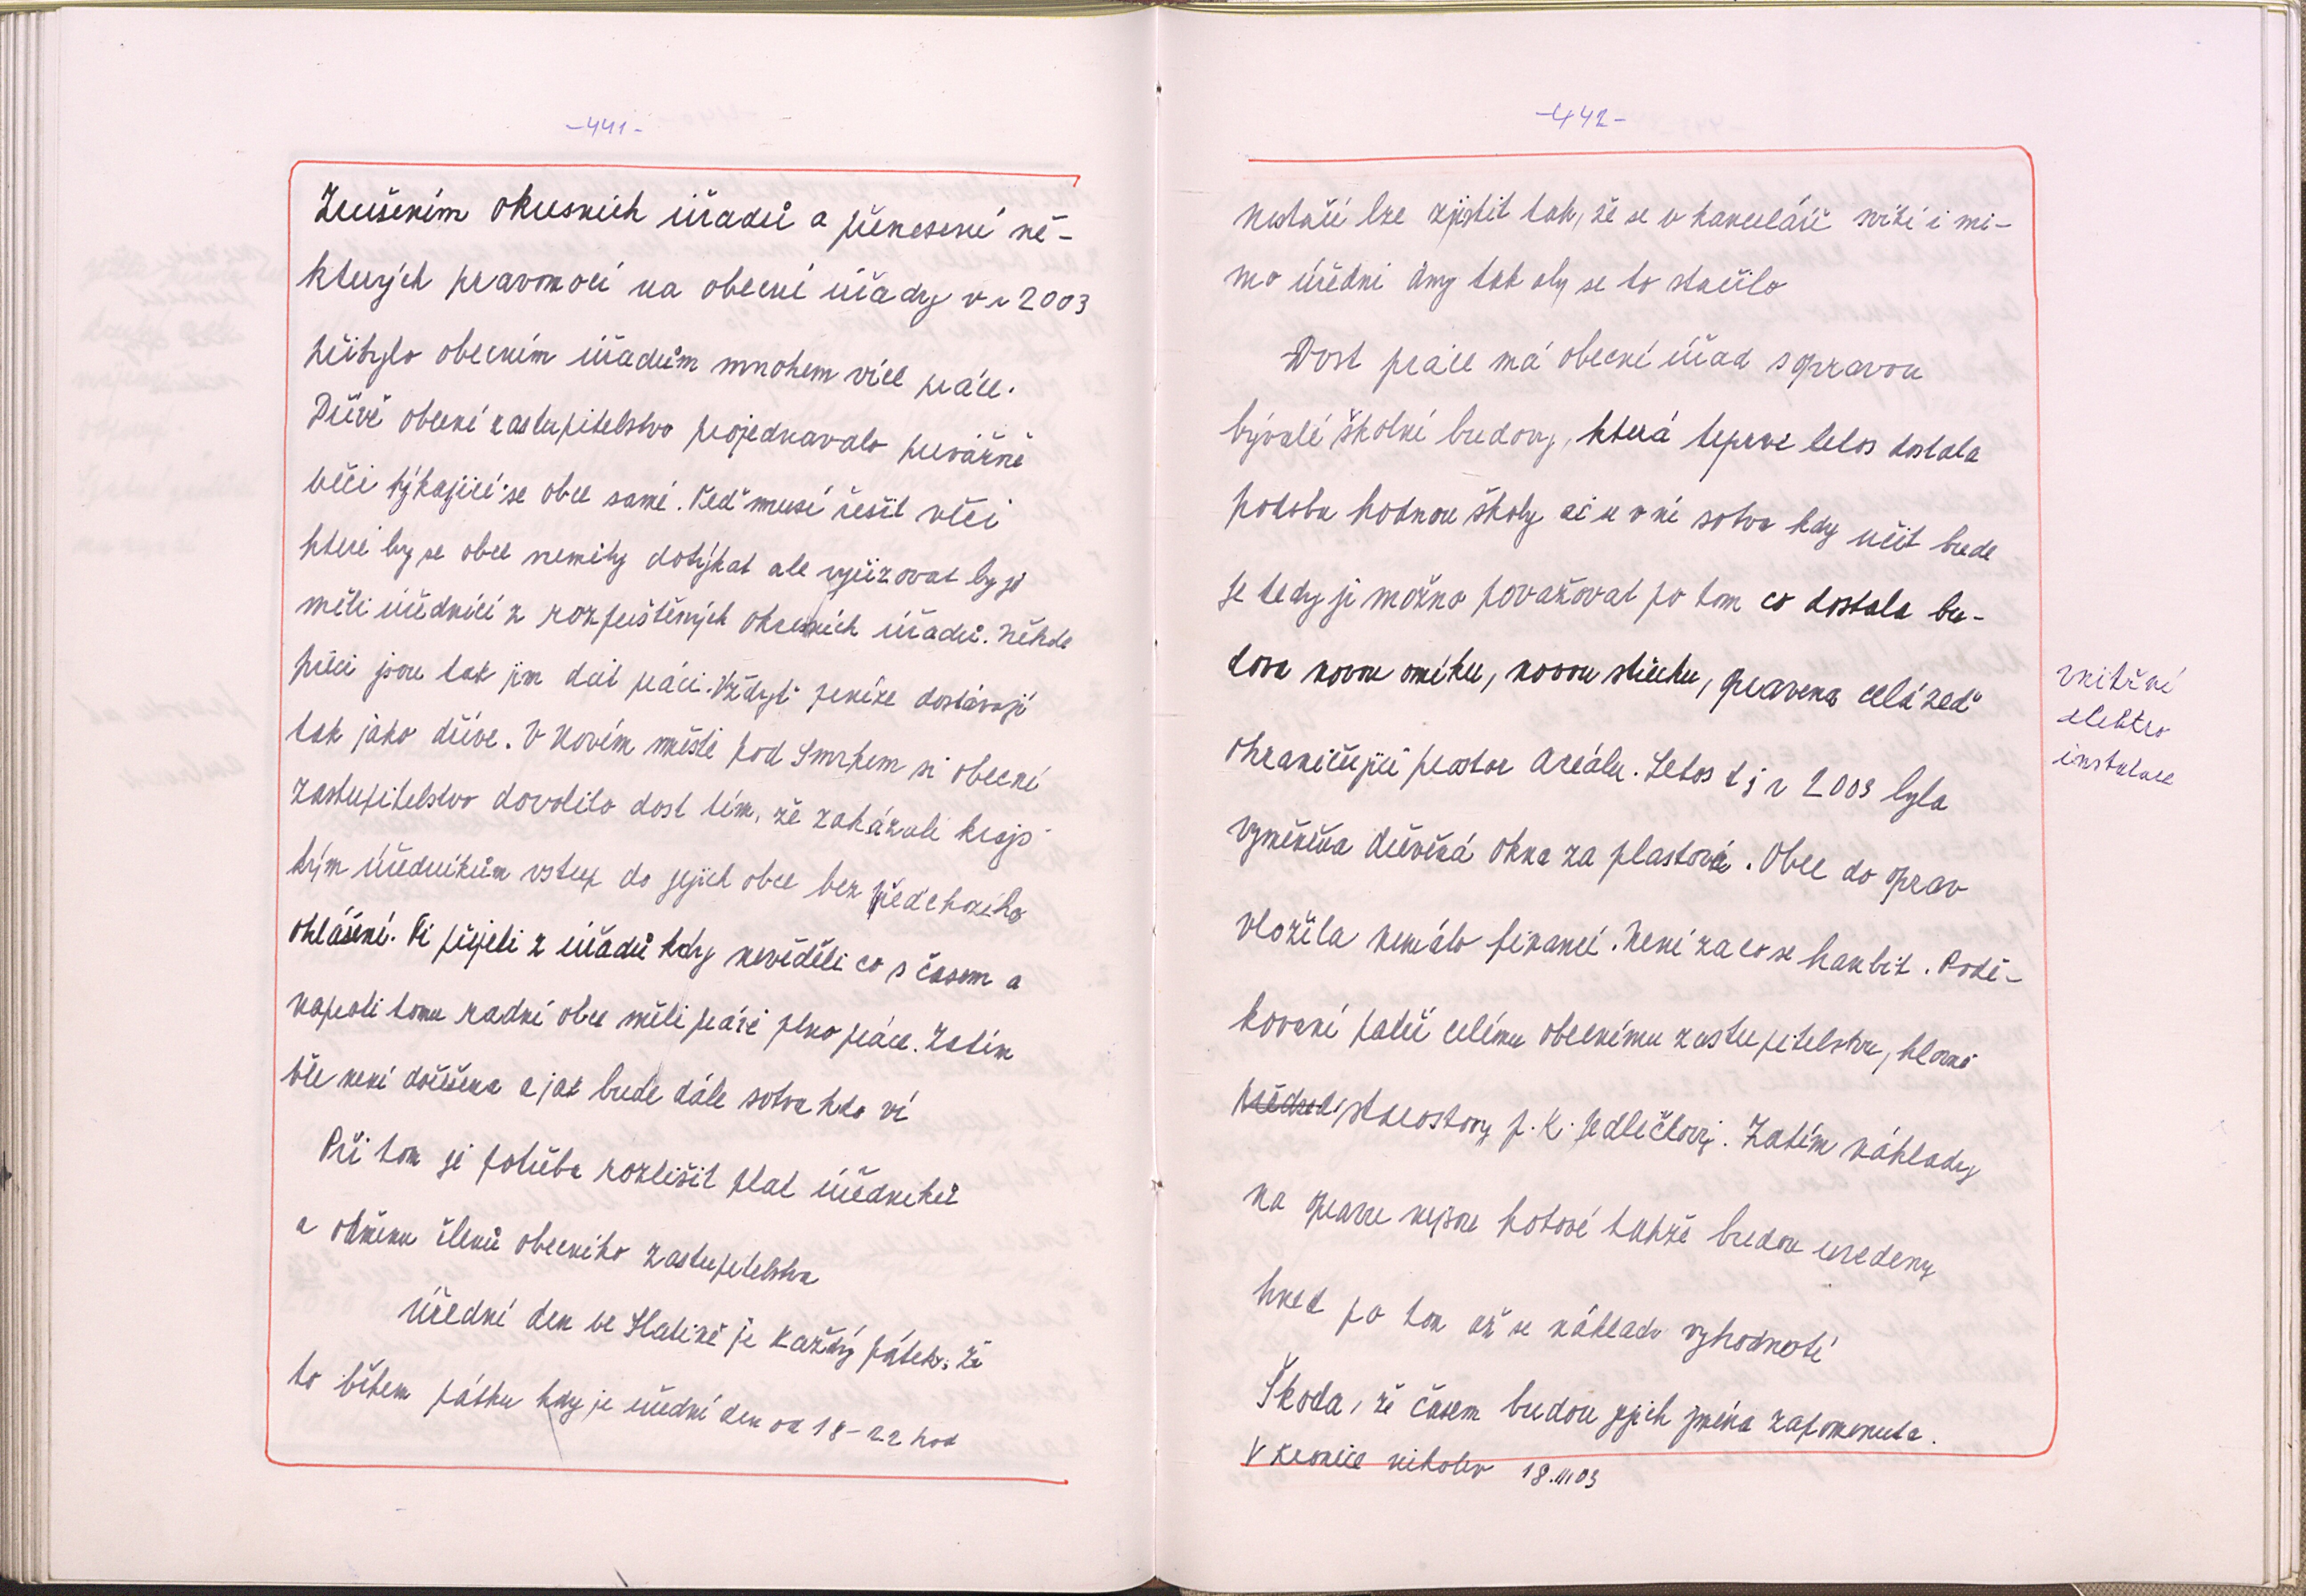 -441-
Zrušením okresních úřadů a přenesení ně-
kterých pravomocí na obecní úřady v r 2003
přibylo obecním úřadům mnohem více práce.
Dříve obecní zastupitelstvo projednavalo převážně
věci týkající se obce samé. Teď musí řešit věci
které by se obce neměly dotýkat ale vyřizovat by je
měli úředníci z rozpuštěných okresních úřadů. Někde
přeci jsou tak jim dát práci. Vždyť peníze dostávají
tak jako dříve. V Novém městě pod Smrkem si obecní
zastupitelstvo dovolilo dost tím, že zakázali kraj-
ským úředníkům vstup do jejich obce bez předchozího
ohlášení. Ti přijeli z úřadů kdy nevěděli co s časem a
naproti tomu radní obce měli právě plno práce. Zatím
věc není dořešena a jak bude dále sotva kdo ví
Při tom je potřeba rozlišit plat úředníků
a odměnu členů obecního zastupitelstva
Úřední den ve Hlatině je každý pátek. Že
to během pátku kdy je úřední den od 18-22 hod
-442-
nestačí lze zjistit tak, že se v kanceláři svítí i mi-
mo úřední dny tak aby se to stačilo
Dost práce má obecní úřad s opravou
bývalé školní budovy, která teprve letos dostala
podobu hodnou školy ač se v ní sotva kdy učit bude
Je tedy ji možno považovat po tom co dostala bu-
dova novou omítku, novou střechu, opravena celá zeď
ohraničující prostor Areálu. Letos t j r 2003 byla
vyměněna dřevěná okna za plastová. Obec do oprav
vložila nemálo financí. Není za co se hanbit. Podě-
kování patří celému obecnímu zastupitelstvu, hlavně
starostovy p. K. Jedličkovy. Zatím náklady
na opravu nejsou hotové takže budou uvedeny
hned po tom až se náklady vyhodnotí
Škoda, že časem budou jejich jména zapomenuta.
V kronice nikoliv 18.III03
vnitřní
elektro
instalace